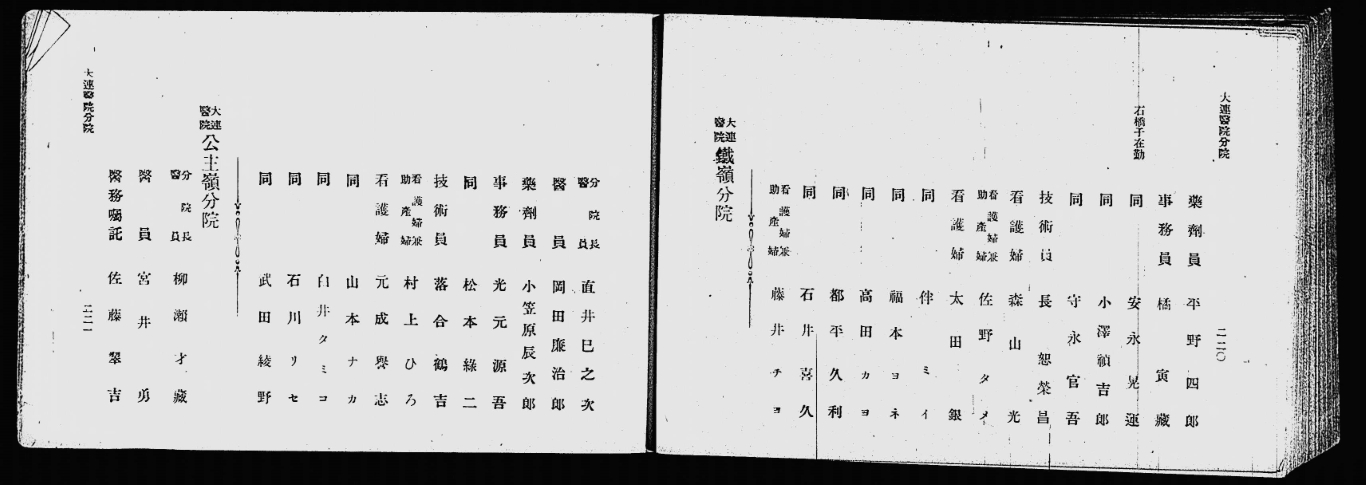 大連醫院分院
二二〇
藥劑員 平野四郎
事務員 橘寅藏
石橋子在勤
同 安永晃運
同 小澤禎吉郎
同 守永官吾
技術員 長恕榮昌
看護婦 森山光
看護婦兼助產婦 佐野タメ
看護婦 太田銀
同 伴ミイ
同 福本ヨネ
同 高田カヨ
同 都平久利
同 石井喜久
看護婦兼助產婦 藤井チヨ
大連醫院鐵嶺分院
分院長醫員 直井巳之次
醫員 岡田廉治郎
藥劑員 小笠原辰次郎
事務員 光元源吾
同 松本綠二
技術員 落合鶴吉
看護婦兼助產婦 村上ひろ
看護婦 元成譽志
同 山本ナカ
同 白井タミコ
同 石川リセ
同 武田綾野
大連醫院公主嶺分院
分院長醫員 柳瀨才藏
醫員 宮井勇
醫務囑託 佐藤翠吉
大連醫院分院
二二一